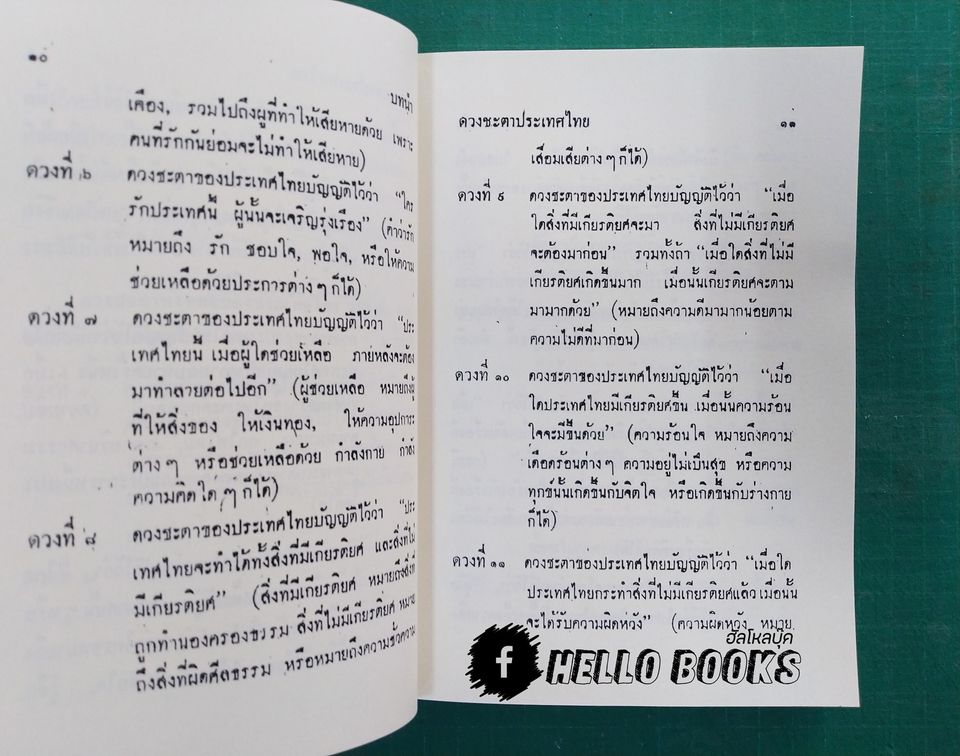 ๑๐
บทนำ
เคือง, รวมไปถึงผู้ที่ทำให้เสียหายด้วย เพราะ
คนที่รักกันย่อมจะไม่ทำให้เสียหาย)
ดวงที่ ๖ ดวงชะตาของประเทศไทยบัญญัติไว้ว่า “ใคร
รักประเทศนี้ ผู้นั้นจะเจริญรุ่งเรือง” (คำว่ารัก
หมายถึง รัก ชอบใจ, พอใจ, หรือให้ความ
ช่วยเหลือด้วยประการต่าง ๆ ก็ได้)
ดวงที่ ๗ ดวงชะตาของประเทศไทยบัญญัติไว้ว่า “ประ
เทศไทยนี้ เมื่อผู้ใดช่วยเหลือ ภายหลังจะต้อง
มาทำลายต่อไปอีก” (ผู้ช่วยเหลือ หมายถึงผู้
ที่ให้สิ่งของ ให้เงินทอง, ให้ความอุปการะ
ต่าง ๆ หรือช่วยเหลือด้วย กำลังกาย กำลัง
ความคิดใด ๆ ก็ได้)
ดวงที่ ๘ ดวงชะตาของประเทศไทยบัญญัติไว้ว่า “ประ
เทศไทยจะทำได้ทั้งสิ่งที่มีเกียรติยศ และสิ่งที่ไม่
มีเกียรติยศ” (สิ่งที่มีเกียรติยศ หมายถึงสิ่งที่
ถูกทำนองครองธรรม สิ่งที่ไม่มีเกียรติยศ หมาย
ถึงสิ่งที่ผิดศีลธรรม หรือหมายถึงความชั่วความ
ดวงชะตาประเทศไทย ๑๑
เสื่อมเสียต่าง ๆ ก็ได้)
ดวงที่ ๙ ดวงชะตาของประเทศไทยบัญญัติไว้ว่า “เมื่อ
ใดสิ่งที่มีเกียรติยศจะมา สิ่งที่ไม่มีเกียรติยศ
จะต้องมาก่อน” รวมทั้งถ้า “เมื่อใดสิ่งที่ไม่มี
เกียรติยศเกิดขึ้นมาก เมื่อนั้นเกียรติยศจะตาม
มามากด้วย” (หมายถึงความดีมามากน้อยตาม
ความไม่ดีที่มาก่อน)
ดวงที่ ๑๐ ดวงชะตาของประเทศไทยบัญญัติไว้ว่า “เมื่อ
ใดประเทศไทยมีเกียรติยศขึ้น เมื่อนั้นความร้อน
ใจจะมีขึ้นด้วย” (ความร้อนใจ หมายถึงความ
เดือดร้อนต่าง ๆ ความอยู่ไม่เป็นสุข หรือความ
ทุกข์นั้นเกิดขึ้นกับจิตใจ หรือเกิดขึ้นกับร่างกาย
ก็ได้)
ดวงที่ ๑๑ ดวงชะตาของประเทศไทยบัญญัติไว้ว่า “เมื่อใด
ประเทศไทยกระทำสิ่งที่ไม่มีเกียรติยศแล้ว เมื่อนั้น
จะได้รับความผิดหวัง” (ความผิดหวัง หมาย
ฮัลโหลบุ๊ค
f HELLO BOOKS